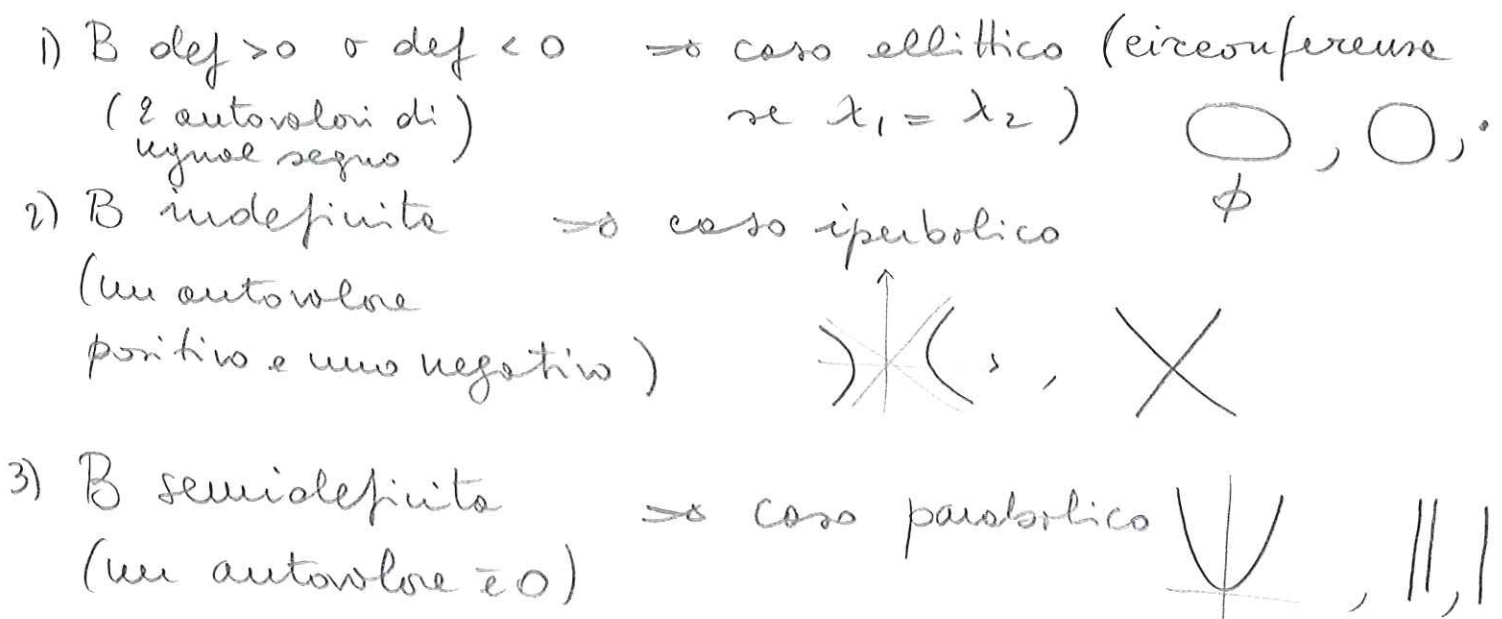 1) B def >0 o def <0 ⇒ caso ellittico (circonferenza
(2 autovalori di ugual segno) se λ₁ = λ₂)
, , .
ϕ
2) B indefinita ⇒ caso iperbolico
(un autovalore
positivo e uno negativo) , ,
3) B semidefinita ⇒ caso parabolico
(un autovalore è 0) , ,